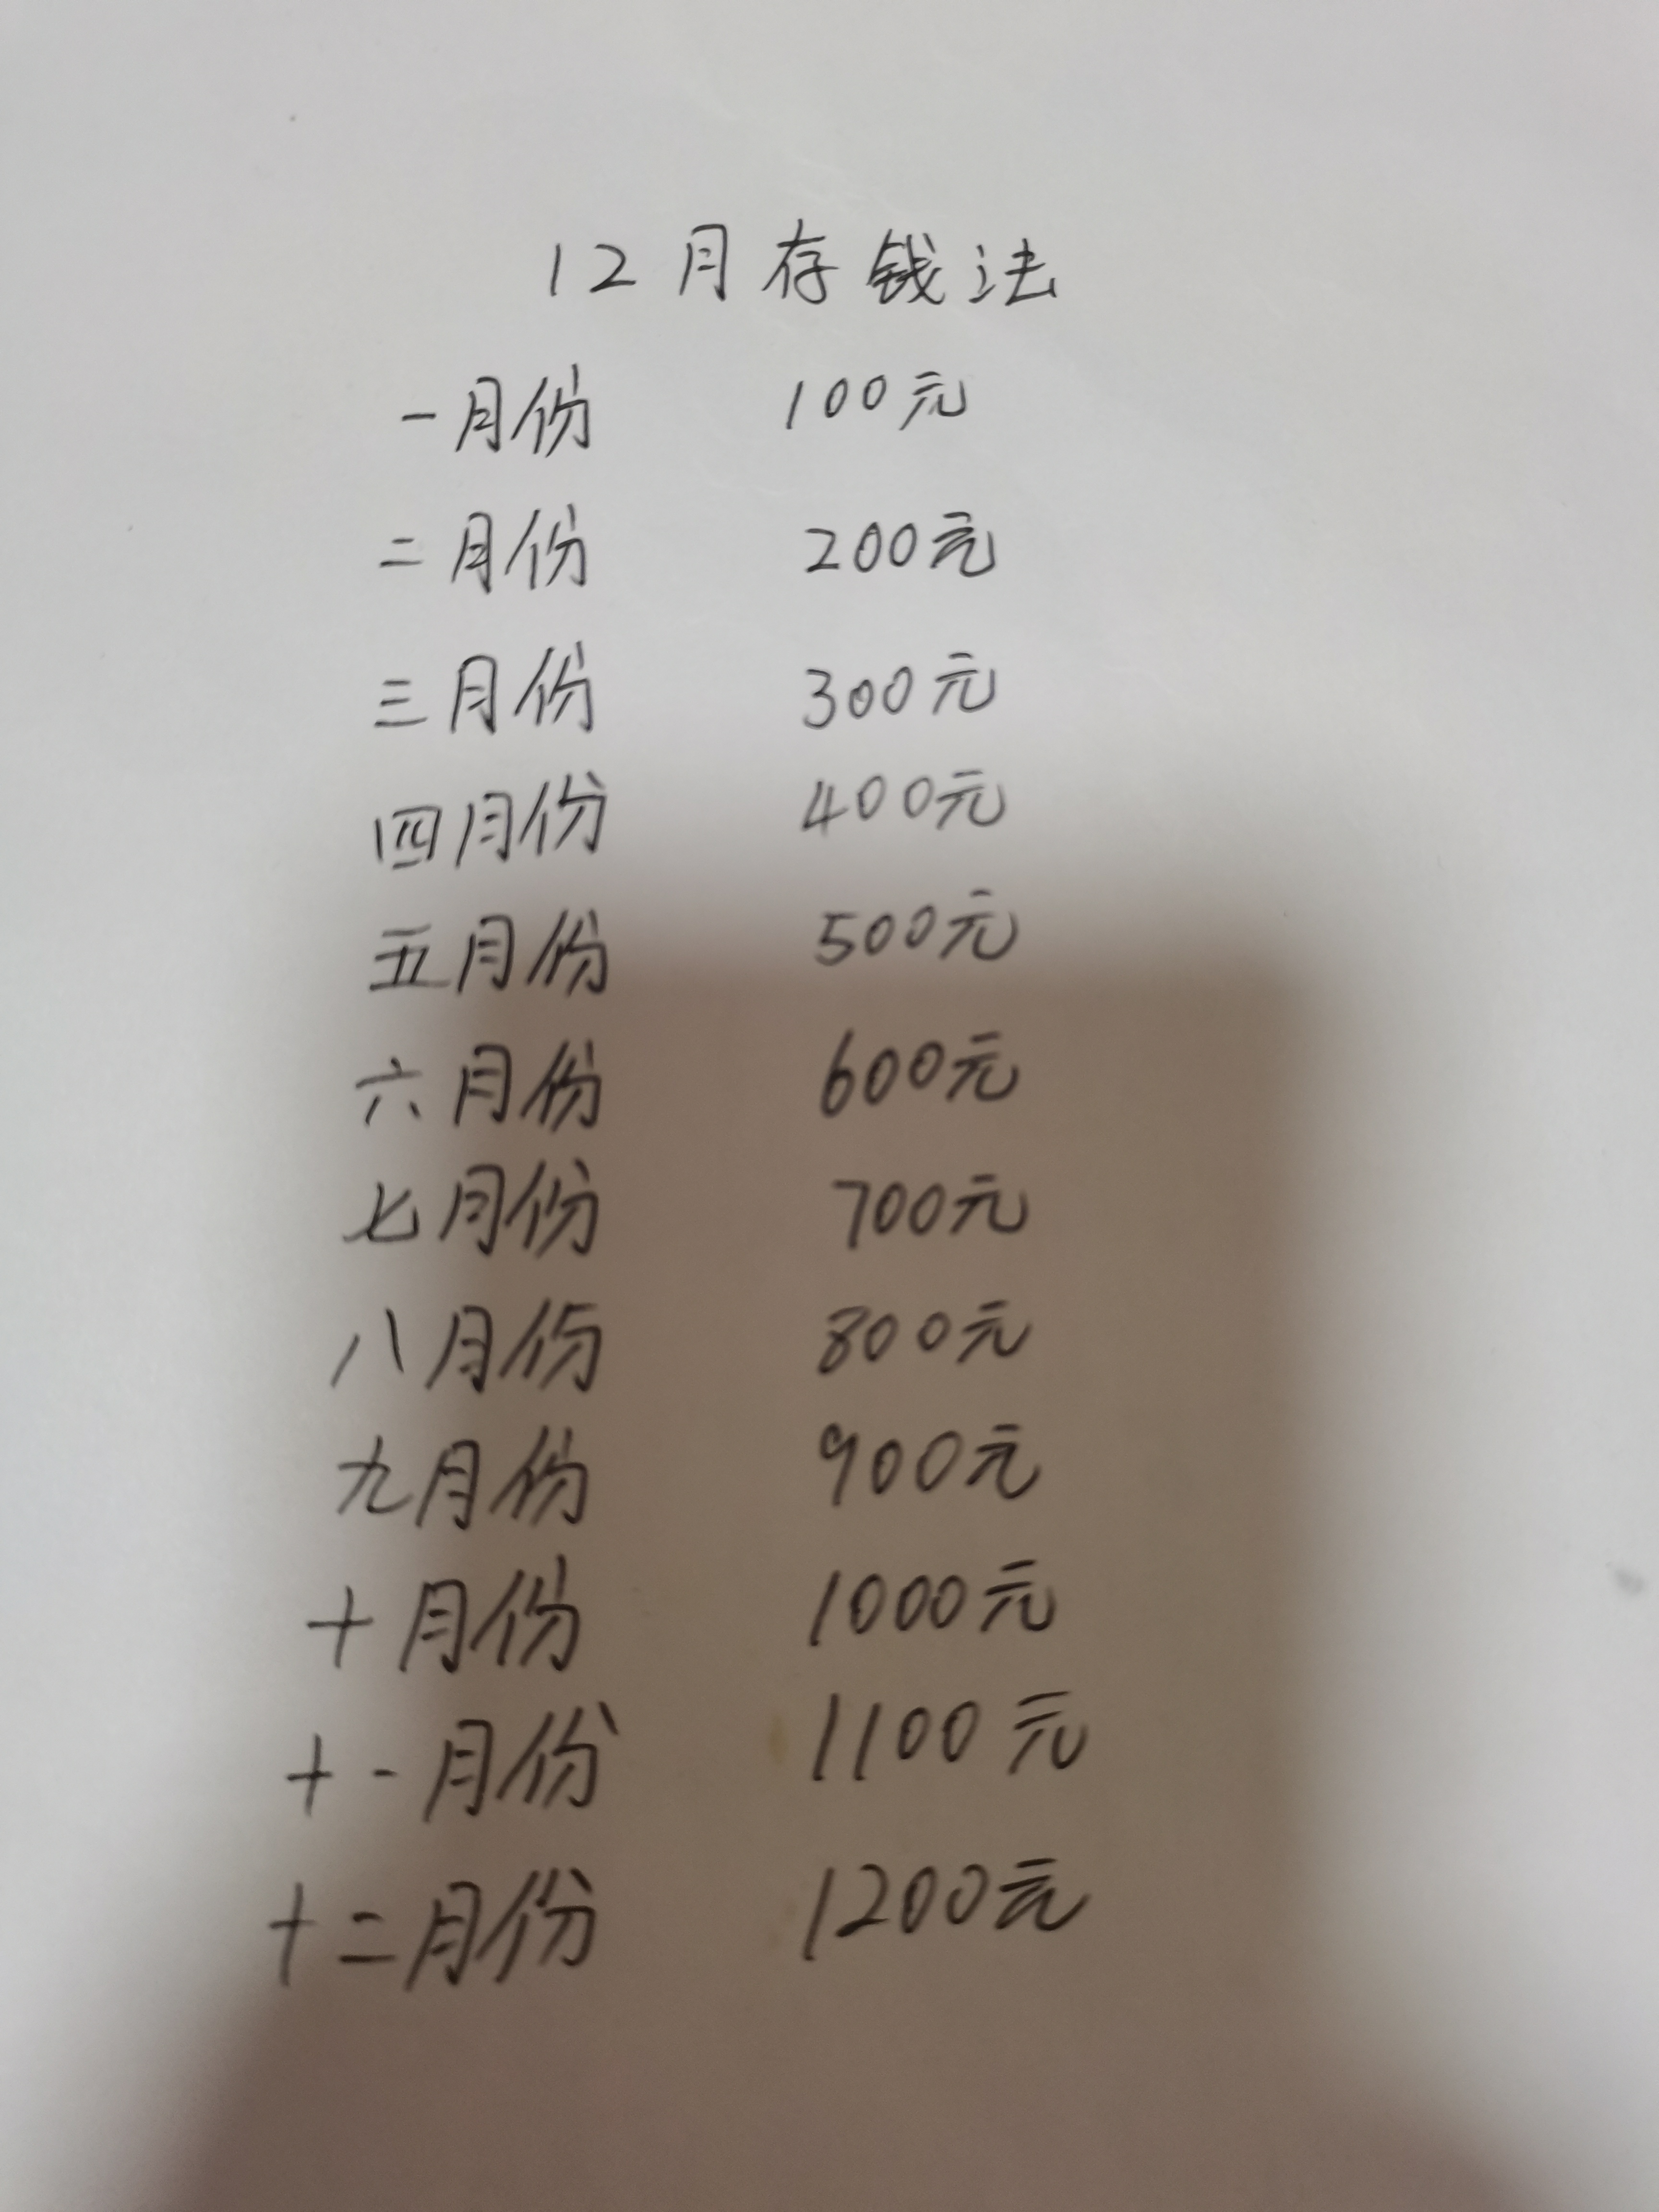 12月存钱法
一月份 100元
二月份 200元
三月份 300元
四月份 400元
五月份 500元
六月份 600元
七月份 700元
八月份 800元
九月份 900元
十月份 1000元
十一月份 1100元
十二月份 1200元